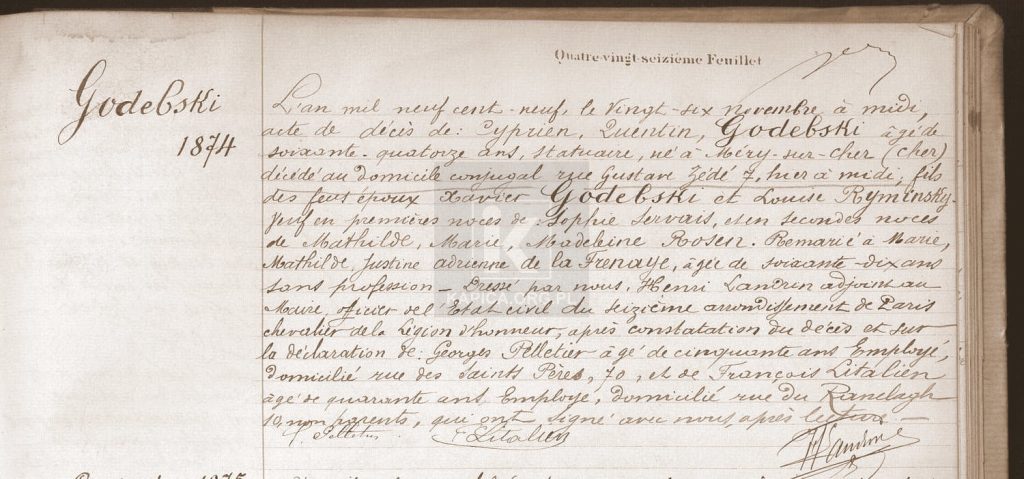 Quatre-vingt-seizième Feuillet
Godebski
1874
L'an mil neuf cent-neuf, le Vingt-six novembre à midi,
acte de décès de: Cyprien, Quentin, Godebski âgé de
soixante-quatorze ans, statuaire, né à Méry-sur-cher (cher)
décédé au domicile conjugal rue Gustave Zédé 7, hier à midi, fils
des feus époux Xavier Godebski et Louise Ryminsky.
Veuf en premières noces de Sophie Servais, et en secondes noces
de Mathilde, Marie, Madeleine Rosen. Remarié à Marie,
Mathilde, Justine adrienne de la Frenaye, âgée de soixante-dix ans
sans profession - Dressé par nous, Henri Landrin adjoint au
Maire, officier de l'Etat civil du seizième arrondissement de Paris
chevalier de la Légion d'honneur, après constatation du décès et sur
la déclaration de: Georges Pelletier âgé de cinquante ans Employé,
domicilié rue des Saints Pères, 70, et de François Litalien
âgé de quarante ans Employé, domicilié rue du Ranelagh
10, non parents, qui ont signé avec nous après lecture
Pelletier Litalien
HLandrin
KAPICA.ORG.PL
1875